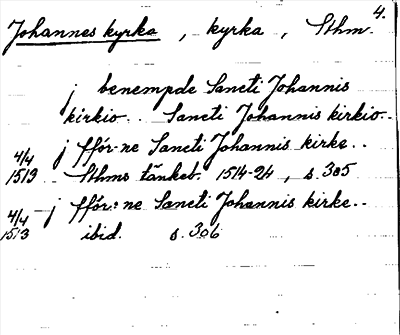 4.
Johannes kyrka, kyrka, Sthm.
j benempde Sancti Johannis
kirkio.. Sancti Johannis kirkio..
4/4 j ffór-ne Sancti Johannis kirke..
1513 Sthms tänkeb. 1514-24, s. 305
4/4 - j ffór:ne Sancti Johannis kirke..
1513 ibid. s. 306